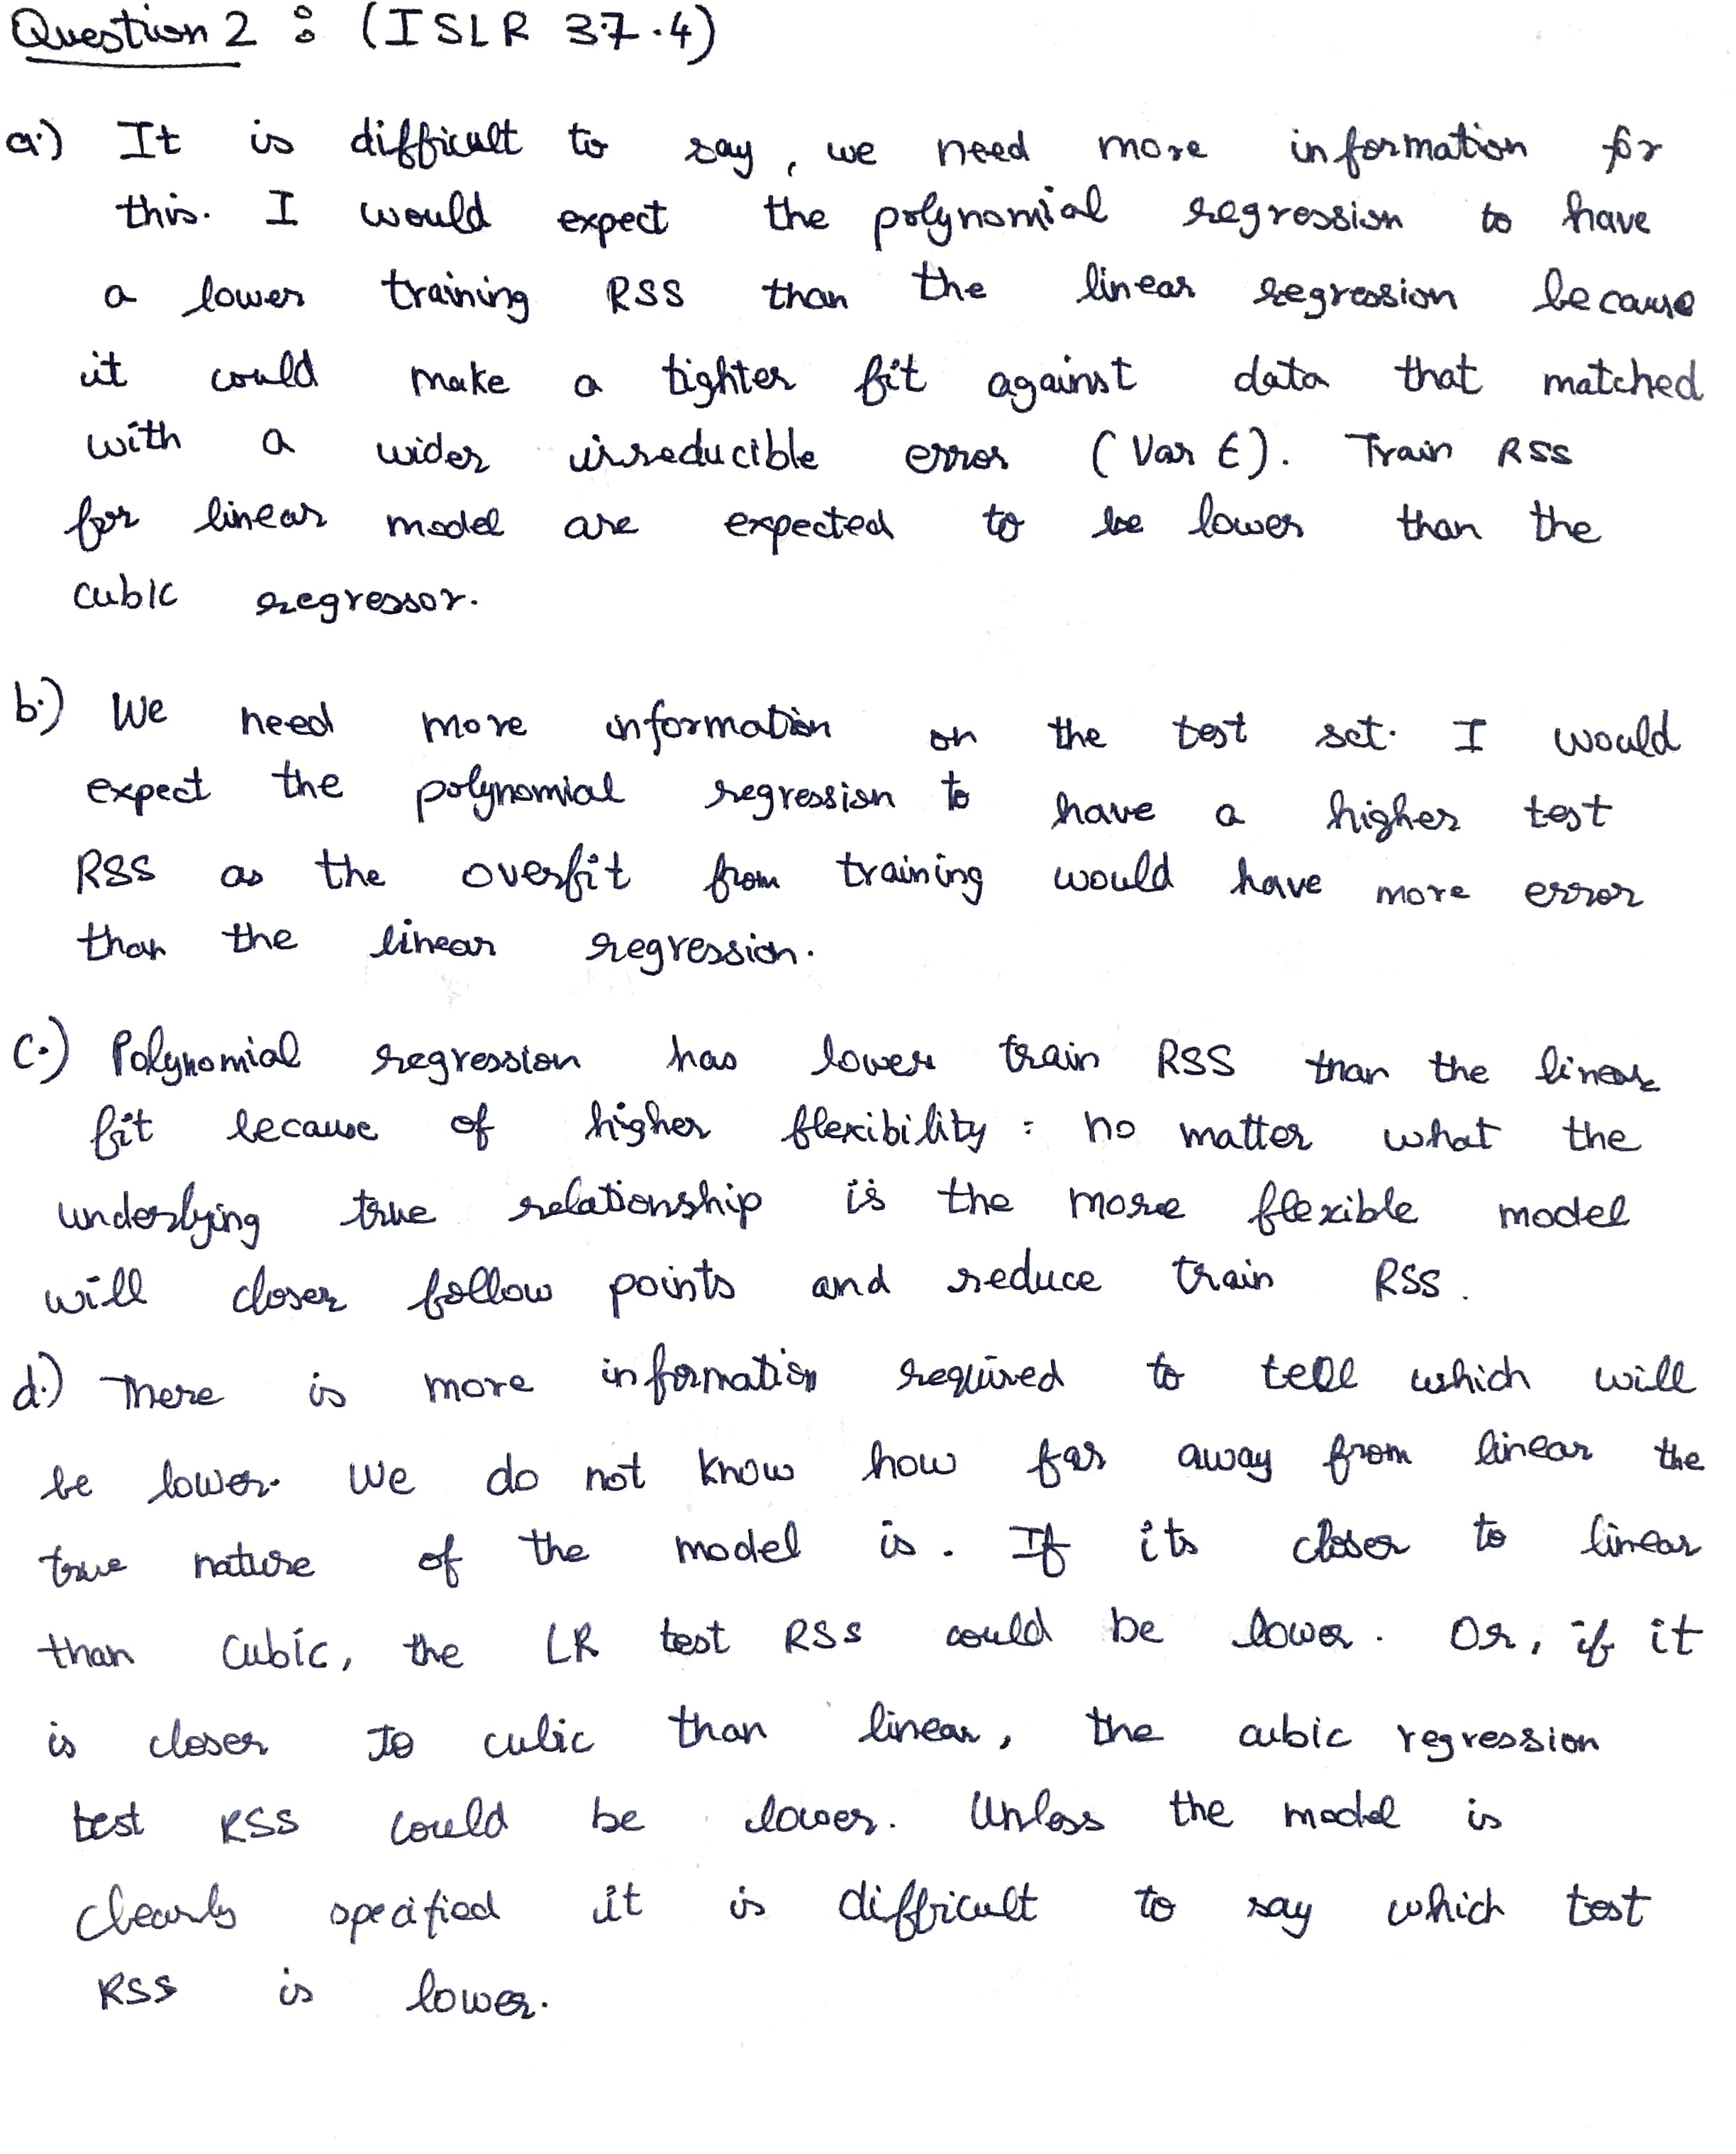 Question 2 : (ISLR 3.7.4)
a.) It is difficult to say, we need more information for
this. I would expect the polynomial regression to have
a lower training RSS than the linear regression because
it could make a tighter fit against data that matched
with a wider irreducible error (Var ϵ). Train RSS
for linear model are expected to be lower than the
cubic regressor.
b.) We need more information on the test set. I would
expect the polynomial regression to have a higher test
RSS as the overfit from training would have more error
than the linear regression.
c.) Polynomial regression has lower train RSS than the linear
fit because of higher flexibility: no matter what the
underlying true relationship is the more flexible model
will closer follow points and reduce train RSS.
d.) There is more information required to tell which will
be lower. We do not know how far away from linear the
true nature of the model is. If its closer to linear
than cubic, the LR test RSS could be lower. Or, if it
is closer to cubic than linear, the cubic regression
test RSS could be lower. Unless the model is
clearly specified it is difficult to say which test
RSS is lower.